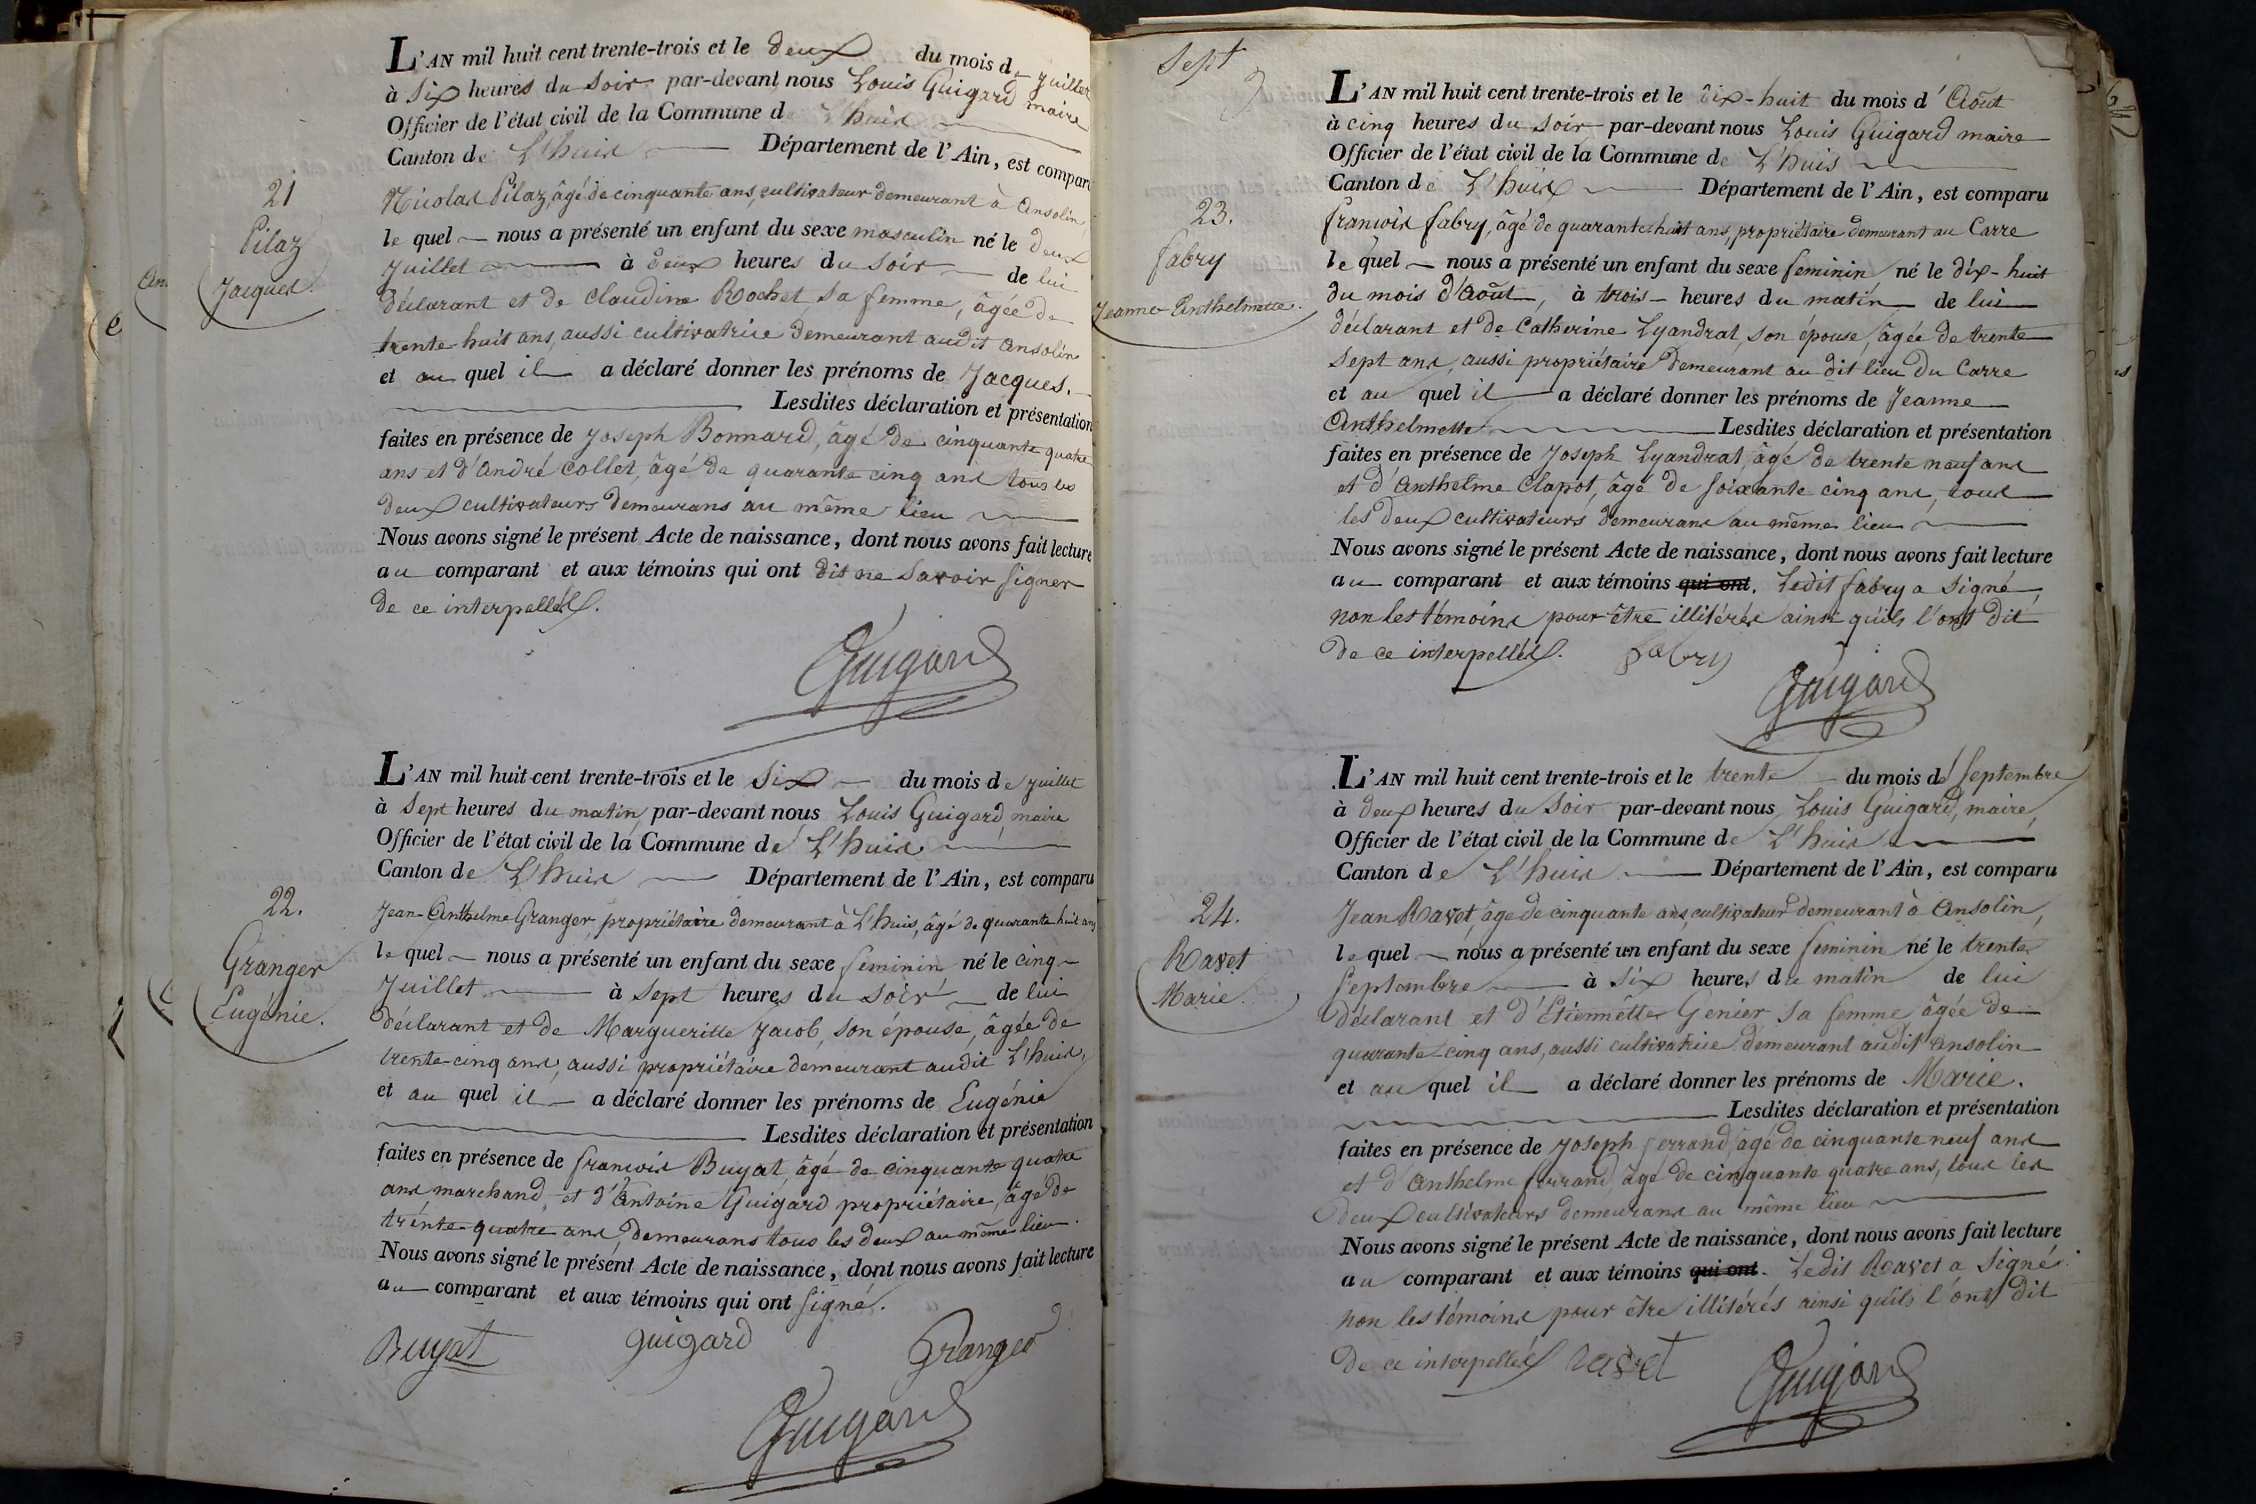 21
Pilaz
Jacques.
L'AN mil huit cent trente-trois et le deux du mois de juillet
à six heures du soir par-devant nous Louis Guigard maire
Officier de l'état civil de la Commune de L'huis
Canton de L'huis Département de l'Ain, est comparu
Nicolas Pilaz, âgé de cinquante ans, cultivateur demeurant à ansolin,
le quel nous a présenté un enfant du sexe masculin né le deux
juillet à deux heures du soir de lui
déclarant et de Claudine Rochet sa femme, âgée de
trente-huit ans, aussi cultivatrice demeurant audit ansolin
et au quel il a déclaré donner les prénoms de Jacques.
Lesdites déclaration et présentation
faites en présence de Joseph Bonnard, âgé de cinquante quatre
ans et d'andré Collet, âgé de quarante cinq ans tous les
deux cultivateurs demeurans au même lieu
Nous avons signé le présent Acte de naissance, dont nous avons fait lecture
au comparant et aux témoins qui ont dit ne savoir signer
de ce interpellés.
Guigard
22.
Granger
Eugénie.
L'AN mil huit cent trente-trois et le six du mois de juillet
à sept heures du matin, par-devant nous Louis Guigard, maire
Officier de l'état civil de la Commune de L'huis
Canton de L'huis Département de l'Ain, est comparu
Jean-Anthelme Granger, propriétaire demeurant à L'huis, âgé de quarante huit ans
le quel nous a présenté un enfant du sexe feminin né le cinq
Juillet à sept heures du soir de lui
déclarant et de Margueritte Jacob, son épouse, âgée de
trente-cinq ans, aussi propriétaire demeurant audit L'huis,
et au quel il a déclaré donner les prénoms de Eugénie
Lesdites déclaration et présentation
faites en présence de françois Buyat, âgé de cinquante quatre
ans, marchand, et d'Antoine Guigard propriétaire, âgé de
trente-quatre ans, demeurans tous les deux au même lieu.
Nous avons signé le présent Acte de naissance, dont nous avons fait lecture
au comparant et aux témoins qui ont signé.
Buyat guigard Granger
Guigard
Sept
23.
fabry
Jeanne-Anthelmette.
L'AN mil huit cent trente-trois et le dix-huit du mois d'Août
à cinq heures du soir par-devant nous Louis Guigard maire
Officier de l'état civil de la Commune de L'huis
Canton de L'huis Département de l'Ain, est comparu
françois fabry, âgé de quarante-huit ans, propriétaire demeurant au Carre
le quel nous a présenté un enfant du sexe feminin né le dix-huit
du mois d'Août, à trois heures du matin de lui
déclarant et de Catherine Lyandrat, son épouse, âgée de trente
sept ans, aussi propriétaire demeurant au dit lieu du Carre
et au quel il a déclaré donner les prénoms de Jeanne
Anthelmette Lesdites déclaration et présentation
faites en présence de Joseph Lyandrat, âgé de trente neuf ans
et d'Anthelme Clapot, âgé de soixante cinq ans, tous
les deux cultivateurs demeurans au même lieu
Nous avons signé le présent Acte de naissance, dont nous avons fait lecture
au comparant et aux témoins qui ont. Ledit fabry a signé,
non les témoins pour être illitérés ainsi qu'ils l'ont dit
de ce interpellés. fabry
Guigard
24.
Ravet
Marie.
L'AN mil huit cent trente-trois et le trente du mois de Septembre
à deux heures du soir par-devant nous Louis Guigard, maire,
Officier de l'état civil de la Commune de L'huis
Canton de L'huis Département de l'Ain, est comparu
Jean Ravet, âgé de cinquante ans, cultivateur demeurant à Ansolin,
le quel nous a présenté un enfant du sexe feminin né le trente
Septembre à six heures du matin de lui
déclarant et d'Etiennette Genier sa femme âgée de
quarante-cinq ans, aussi cultivatrice demeurant audit ansolin
et au quel il a déclaré donner les prénoms de Marie.
Lesdites déclaration et présentation
faites en présence de Joseph ferrand, âgé de cinquante neuf ans
et d'Anthelme ferrand âgé de cinquante quatre ans, tous les
deux cultivateurs demeurans au même lieu
Nous avons signé le présent Acte de naissance, dont nous avons fait lecture
au comparant et aux témoins qui ont. Ledit Ravet a signé
non les témoins pour être illitérés ainsi qu'ils l'ont dit
de ce interpellés ravet
Guigard